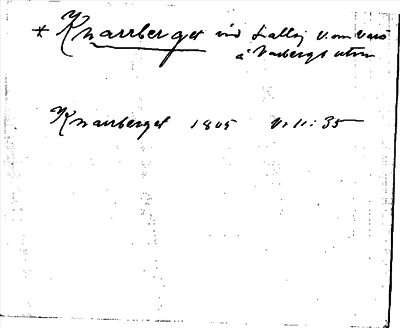 * Knarrberget vid Lallej V. om Varö
å Varbergs utm
Knarrberget 1805 V. 11: 35